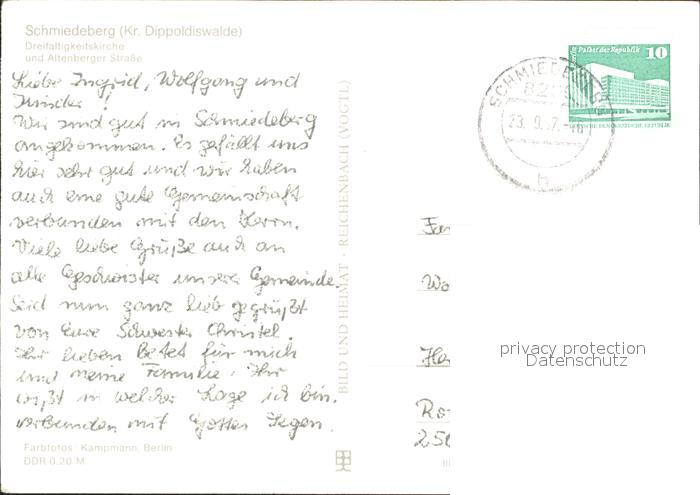 Schmiedeberg (Kr. Dippoldiswalde)
Dreifaltigkeitskirche
und Altenberger Straße
Liebe Ingrid, Wolfgang und
Kinder!
Wir sind gut in Schmiedeberg
angekommen. Es gefällt uns
hier sehr gut und wir haben
auch eine gute Gemeinschaft
verbunden mit den Herrn.
Viele liebe Grüße auch an
alle Geschwister unserer Gemeinde.
Seid nun ganz lieb gegrüßt
von Eure Schwester Christel.
Ihr lieben betet für mich
und meine Familie. Ihr
wißt in welcher Lage ich bin.
verbunden mit Gottes Segen.
Farbfotos: Kampmann, Berlin
DDR 0,20 M
BILD UND HEIMAT · REICHENBACH (VOGTL)
SCHMIEDEBERG
23.9.
h
Palast der Republik
10
DEUTSCHE DEMOKRATISCHE REPUBLIK
Fa
Wo
Ha
Ro
250
privacy protection
Datenschutz